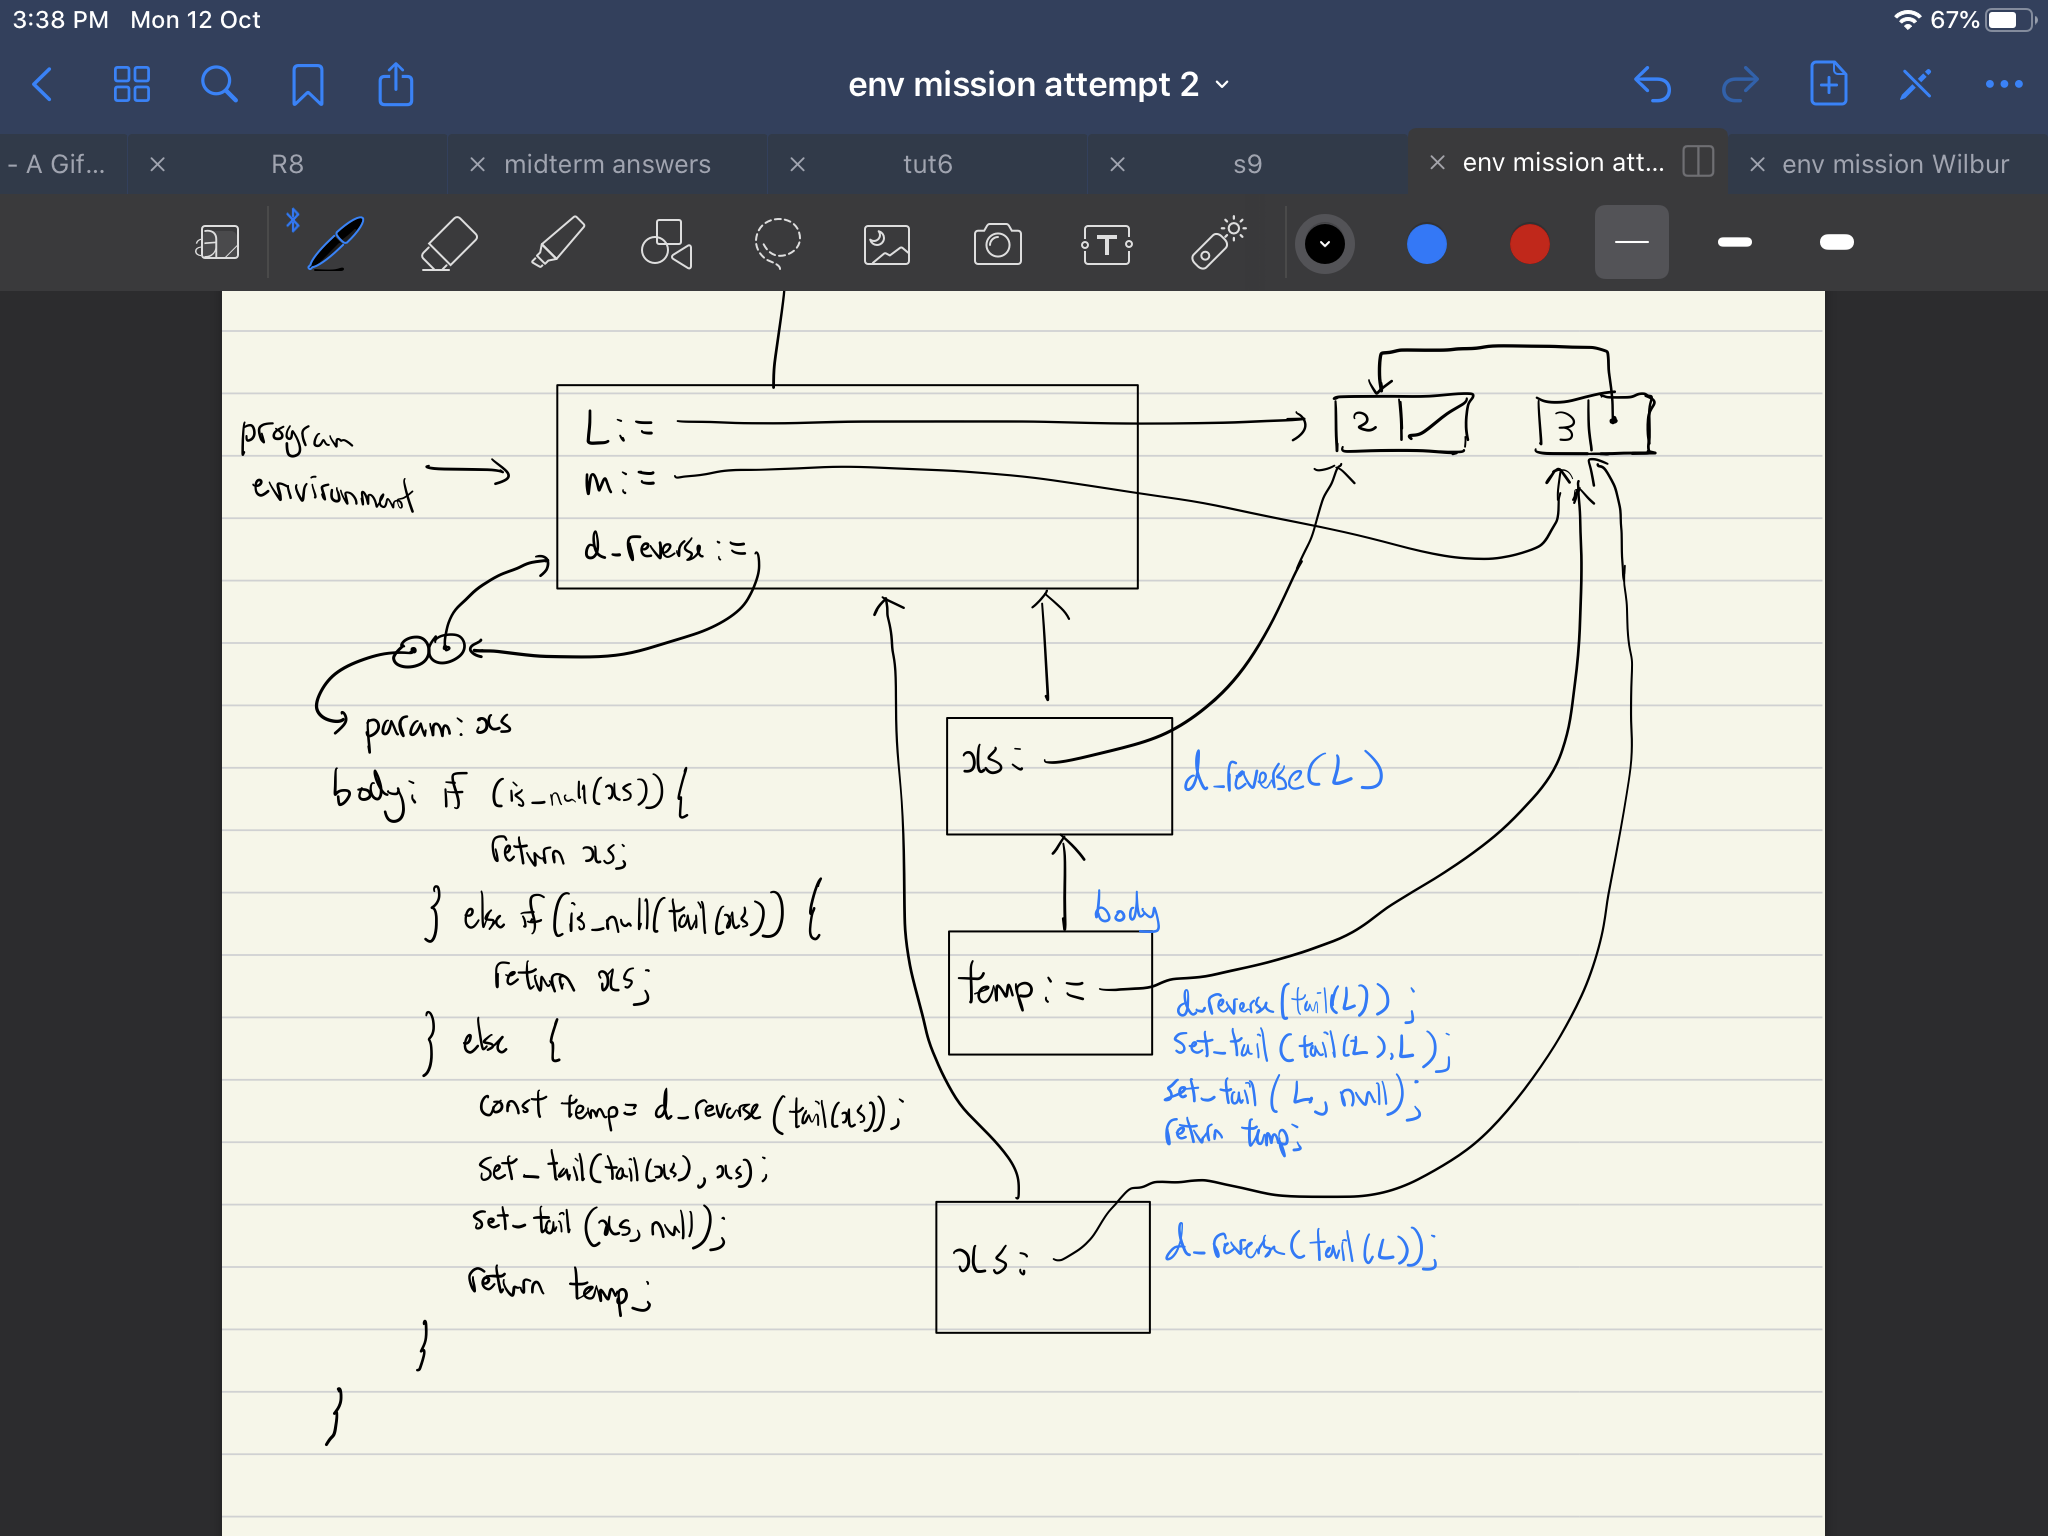 3:38 PM Mon 12 Oct
67%
env mission attempt 2
- A Gif...
R8
midterm answers
tut6
s9
env mission att...
env mission Wilbur
T
program
environment
L :=
m :=
d_reverse :=
2
3
param: xs
body: if (is_null(xs)) {
return xs;
} else if (is_null(tail(xs)) {
return xs;
} else {
const temp = d_reverse (tail(xs));
set_tail(tail(xs), xs);
set_tail (xs, null);
return temp;
}
}
xs:
d_reverse(L)
body
temp :=
d_reverse(tail(L));
set_tail (tail(L), L);
set_tail (L, null);
return temp;
xs:
d_reverse(tail(L));